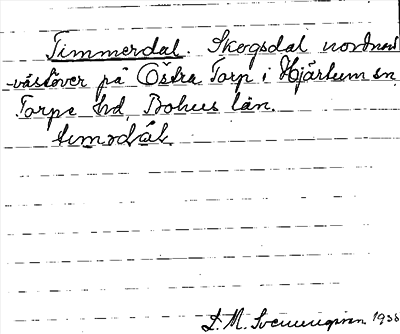 Timmerdal. Skogsdal nordnord
-västöver på Östra Torp i Hjärtum sn,
Torpe hd, Bohus län.
timodal.
L. M. Svenungsson 1938